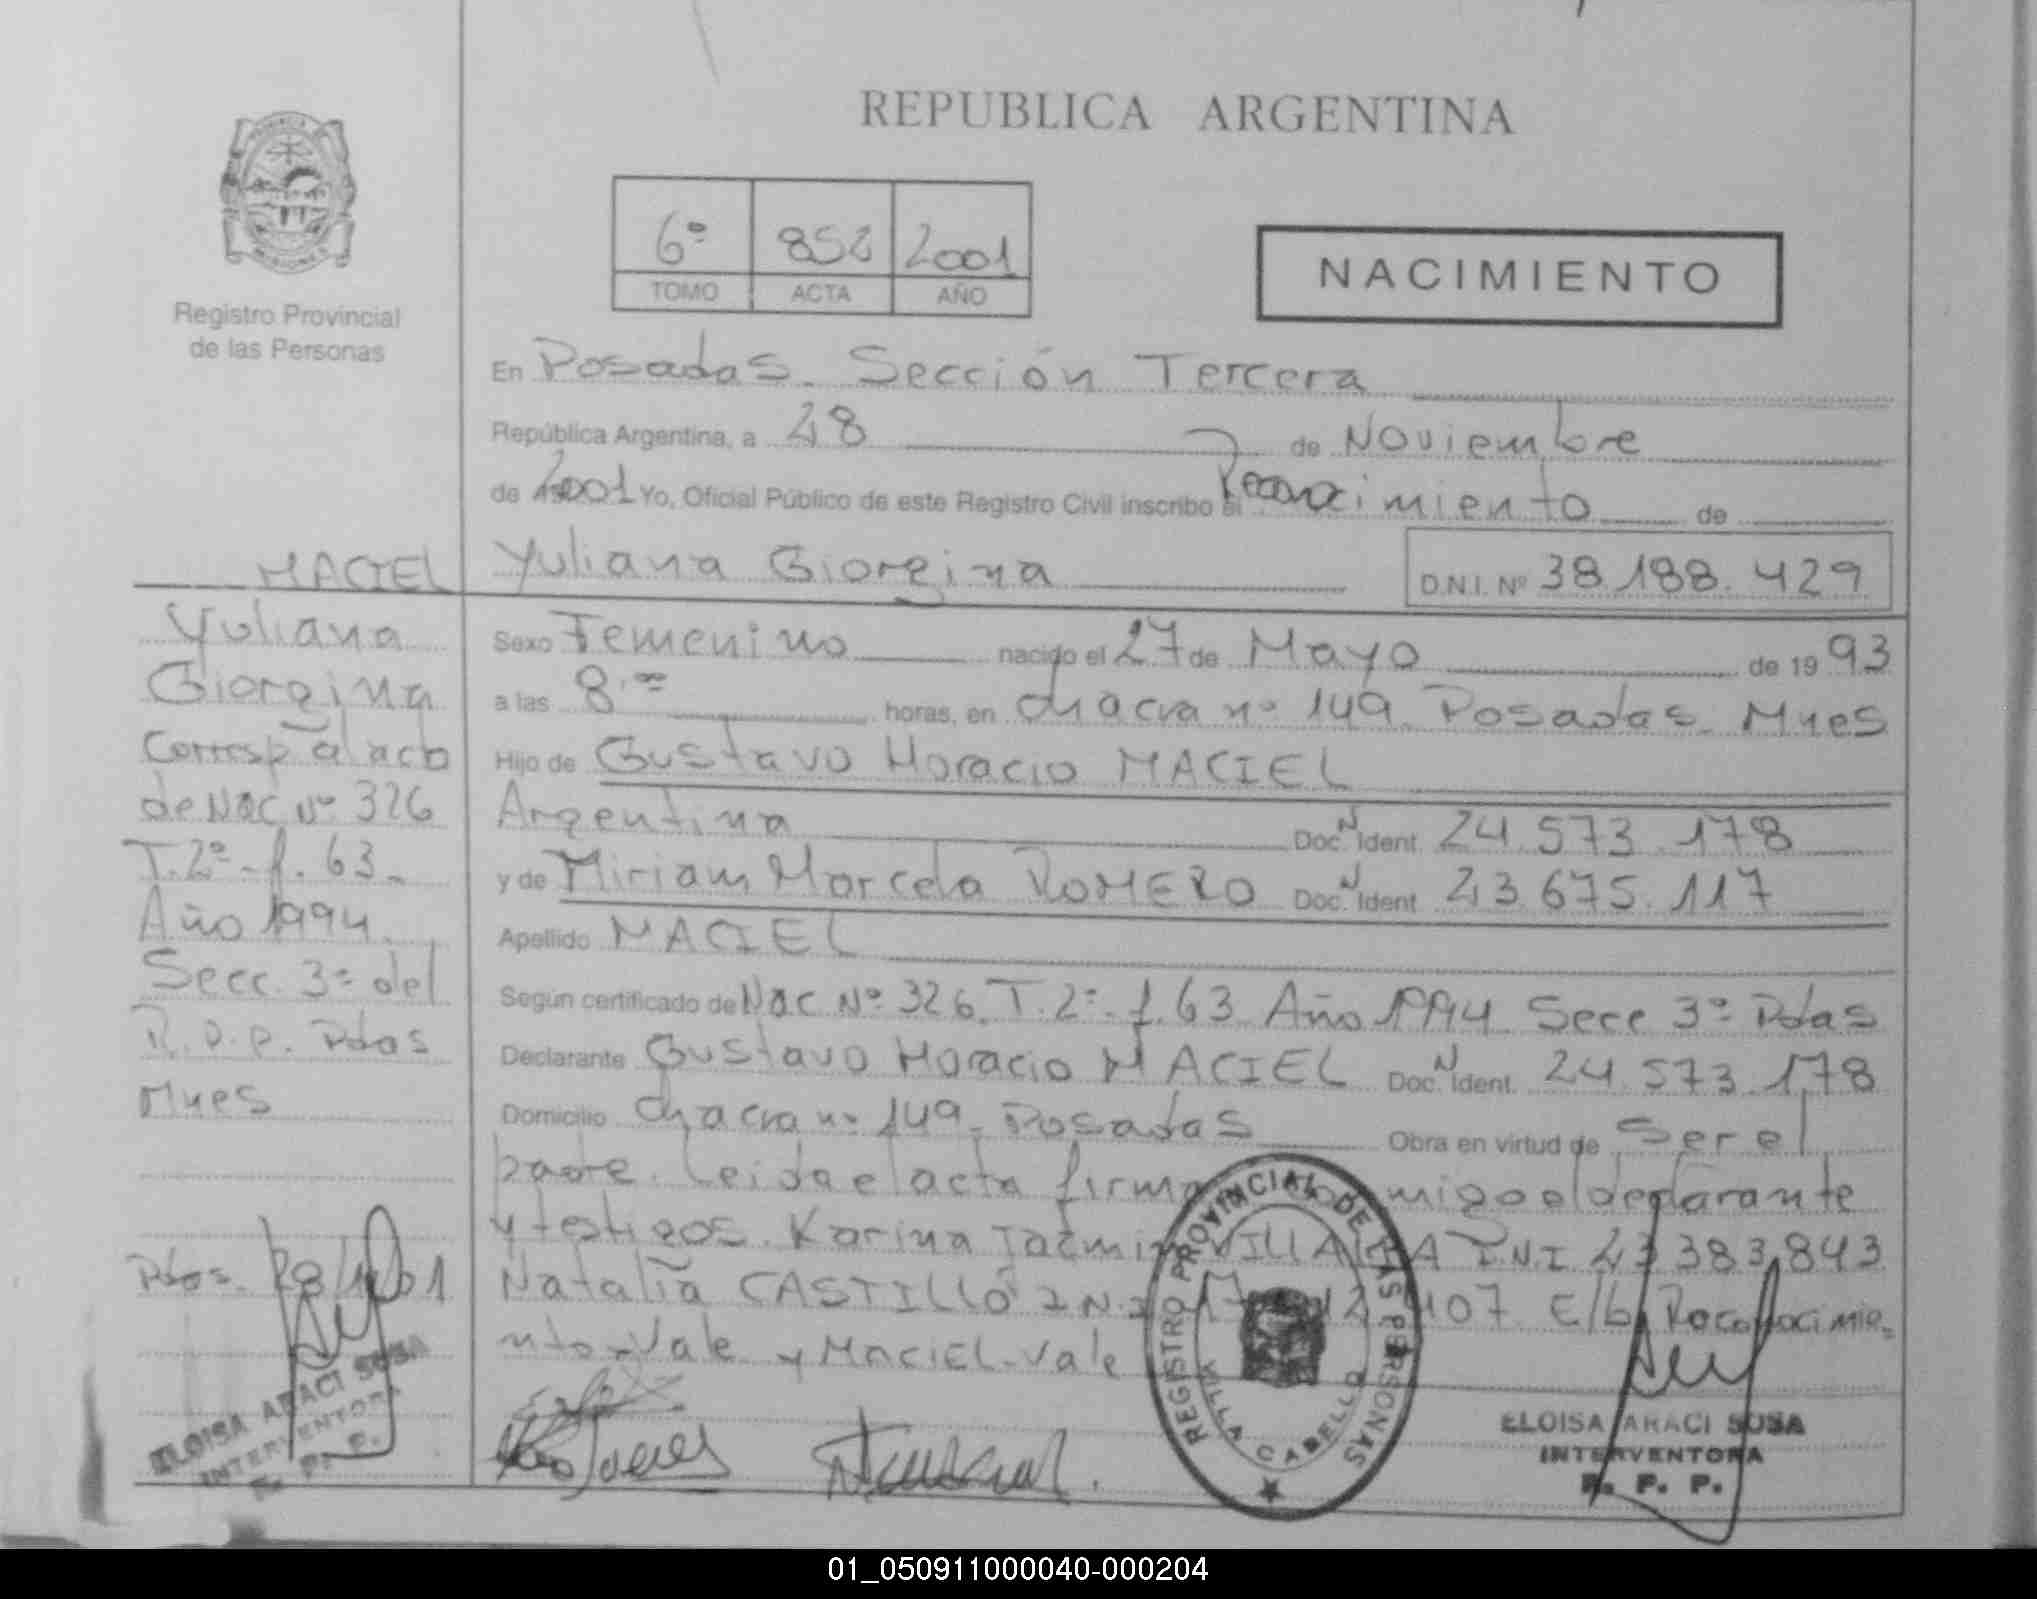 REPUBLICA ARGENTINA
PROVINCIA
MISIONES
Registro Provincial
de las Personas
6º 852 2001
TOMO ACTA AÑO
NACIMIENTO
En Posadas. Sección Tercera
República Argentina, a 28 de Noviembre
de 2001 Yo, Oficial Público de este Registro Civil inscribo el Reconocimiento de
MACIEL Yuliana Giorgina D.N.I. Nº 38.188.429
Yuliana
Giorgina
Corresp al acto
de Nac Nº 326
T.2º - f. 63.
Año 1994.
Secc. 3º del
R.P.P. Pdas
Mnes
Pdas. 28/11/01
ELOISA ARACI SOSA
INTERVENTORA
R. P. P.
Sexo Femenino nacido el 27 de Mayo de 19 93
a las 8.ºº horas, en chacra nº 149. Posadas. Mnes
Hijo de Gustavo Horacio MACIEL
Argentina Doc. N Ident. 24.573.178
y de Miriam Marcela ROMERO Doc. N Ident 23.675.117
Apellido MACIEL
Según certificado de Nac Nº 326. T.2º - f. 63 Año 1994 Secc 3º Pdas
Declarante Gustavo Horacio MACIEL Doc. N Ident. 24.573.178
Domicilio chacra nº 149. Posadas Obra en virtud de Ser el
padre. Leida el acta firma conmigo el declarante
y testigos. Karina VILLALBA D.N.I 23 383,843
Natalia CASTILLO D.N.I 107. E/L Reconocimie-
nto-Vale y MACIEL-Vale
REGISTRO PROVINCIAL DE LAS PERSONAS
VILLA CABELLO
ELOISA ARACI SOSA
INTERVENTORA
R. P. P.
01_050911000040-000204